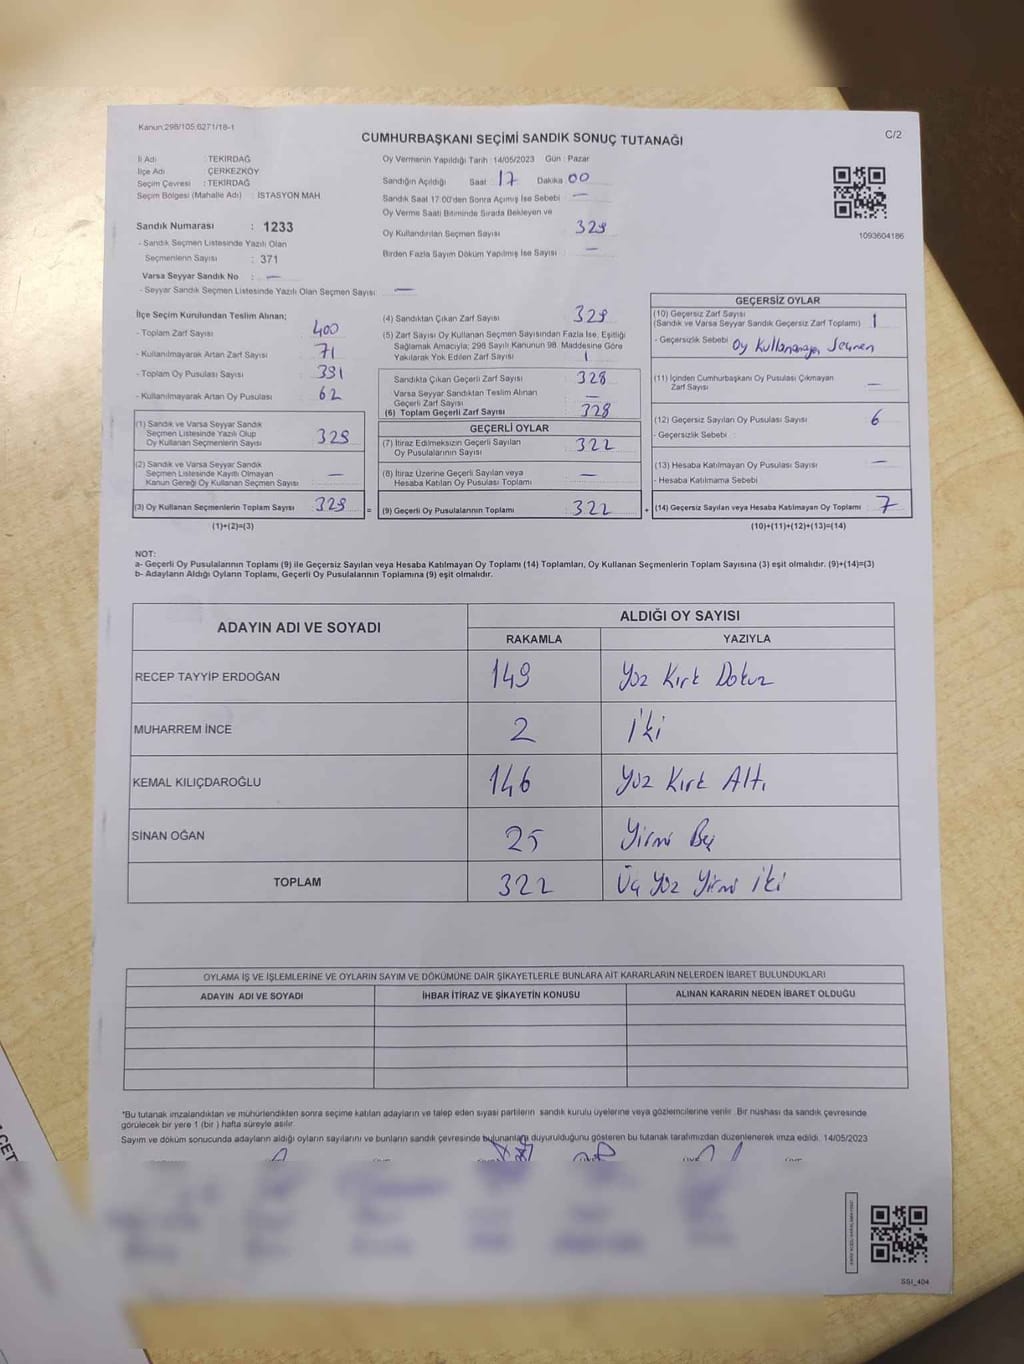 Kanun:298/105;6271/18-1
C/2
CUMHURBAŞKANI SEÇİMİ SANDIK SONUÇ TUTANAĞI
İl Adı : TEKİRDAĞ
İlçe Adı : ÇERKEZKÖY
Seçim Çevresi : TEKİRDAĞ
Seçim Bölgesi (Mahalle Adı) : İSTASYON MAH
Sandık Numarası : 1233
- Sandık Seçmen Listesinde Yazılı Olan
Seçmenlerin Sayısı : 371
Varsa Seyyar Sandık No : —
- Seyyar Sandık Seçmen Listesinde Yazılı Olan Seçmen Sayısı: —
Oy Vermenin Yapıldığı Tarih : 14/05/2023 Gün : Pazar
Sandığın Açıldığı Saat 17 Dakika 00
Sandık Saat 17:00'den Sonra Açımış İse Sebebi : —
Oy Verme Saati Bitiminde Sırada Bekleyen ve
Oy Kullandırılan Seçmen Sayısı : 329
Birden Fazla Sayım Döküm Yapılmış İse Sayısı : —
1093604186
İlçe Seçim Kurulundan Teslim Alınan;
- Toplam Zarf Sayısı : 400
- Kullanılmayarak Artan Zarf Sayısı : 71
- Toplam Oy Pusulası Sayısı : 391
- Kullanılmayarak Artan Oy Pusulası : 62
(1) Sandık ve Varsa Seyyar Sandık
Seçmen Listesinde Yazılı Olup
Oy Kullanan Seçmenlerin Sayısı : 329
(2) Sandık ve Varsa Seyyar Sandık
Seçmen Listesinde Kayıtlı Olmayan
Kanun Gereği Oy Kullanan Seçmen Sayısı : —
(3) Oy Kullanan Seçmenlerin Toplam Sayısı : 329
(1)+(2)=(3)
(4) Sandıktan Çıkan Zarf Sayısı : 329
(5) Zarf Sayısı Oy Kullanan Seçmen Sayısından Fazla İse, Eşitliği
Sağlamak Amacıyla; 298 Sayılı Kanunun 98. Maddesine Göre
Yakılarak Yok Edilen Zarf Sayısı : 1
Sandıkta Çıkan Geçerli Zarf Sayısı : 328
Varsa Seyyar Sandıktan Teslim Alınan
Geçerli Zarf Sayısı : —
(6) Toplam Geçerli Zarf Sayısı : 328
GEÇERLİ OYLAR
(7) İtiraz Edilmeksizin Geçerli Sayılan
Oy Pusulalarının Sayısı : 322
(8) İtiraz Üzerine Geçerli Sayılan veya
Hesaba Katılan Oy Pusulası Toplamı : —
= (9) Geçerli Oy Pusulalarının Toplamı : 322
GEÇERSİZ OYLAR
(10) Geçersiz Zarf Sayısı
(Sandık ve Varsa Seyyar Sandık Geçersiz Zarf Toplamı) : 1
- Geçersizlik Sebebi : Oy Kullanmayan Seçmen
(11) İçinden Cumhurbaşkanı Oy Pusulası Çıkmayan
Zarf Sayısı : —
(12) Geçersiz Sayılan Oy Pusulası Sayısı : 6
- Geçersizlik Sebebi :
(13) Hesaba Katılmayan Oy Pusulası Sayısı : —
- Hesaba Katılmama Sebebi
+ (14) Geçersiz Sayılan veya Hesaba Katılmayan Oy Toplamı : 7
(10)+(11)+(12)+(13)=(14)
NOT:
a- Geçerli Oy Pusulalarının Toplamı (9) ile Geçersiz Sayılan veya Hesaba Katılmayan Oy Toplamı (14) Toplamları, Oy Kullanan Seçmenlerin Toplam Sayısına (3) eşit olmalıdır. (9)+(14)=(3)
b- Adayların Aldığı Oyların Toplamı, Geçerli Oy Pusulalarının Toplamına (9) eşit olmalıdır.
ADAYIN ADI VE SOYADI ALDIĞI OY SAYISI
RAKAMLA YAZIYLA
RECEP TAYYİP ERDOĞAN 149 Yüz Kırk Dokuz
MUHARREM İNCE 2 İki
KEMAL KILIÇDAROĞLU 146 Yüz Kırk Altı
SİNAN OĞAN 25 Yirmi Beş
TOPLAM 322 Üç Yüz Yirmi İki
OYLAMA İŞ VE İŞLEMLERİNE VE OYLARIN SAYIM VE DÖKÜMÜNE DAİR ŞİKAYETLERLE BUNLARA AİT KARARLARIN NELERDEN İBARET BULUNDUKLARI
ADAYIN ADI VE SOYADI İHBAR İTİRAZ VE ŞİKAYETİN KONUSU ALINAN KARARIN NEDEN İBARET OLDUĞU
*Bu tutanak imzalandıktan ve mühürlendikten sonra seçime katılan adayların ve talep eden siyasi partilerin sandık kurulu üyelerine veya gözlemcilerine verilir. Bir nüshası da sandık çevresinde
görülecek bir yere 1 (bir) hafta süreyle asılır.
Sayım ve döküm sonucunda adayların aldığı oyların sayılarını ve bunların sandık çevresinde bulunanlara duyurulduğunu gösteren bu tutanak tarafımızdan düzenlenerek imza edildi. 14/05/2023
SSI_404